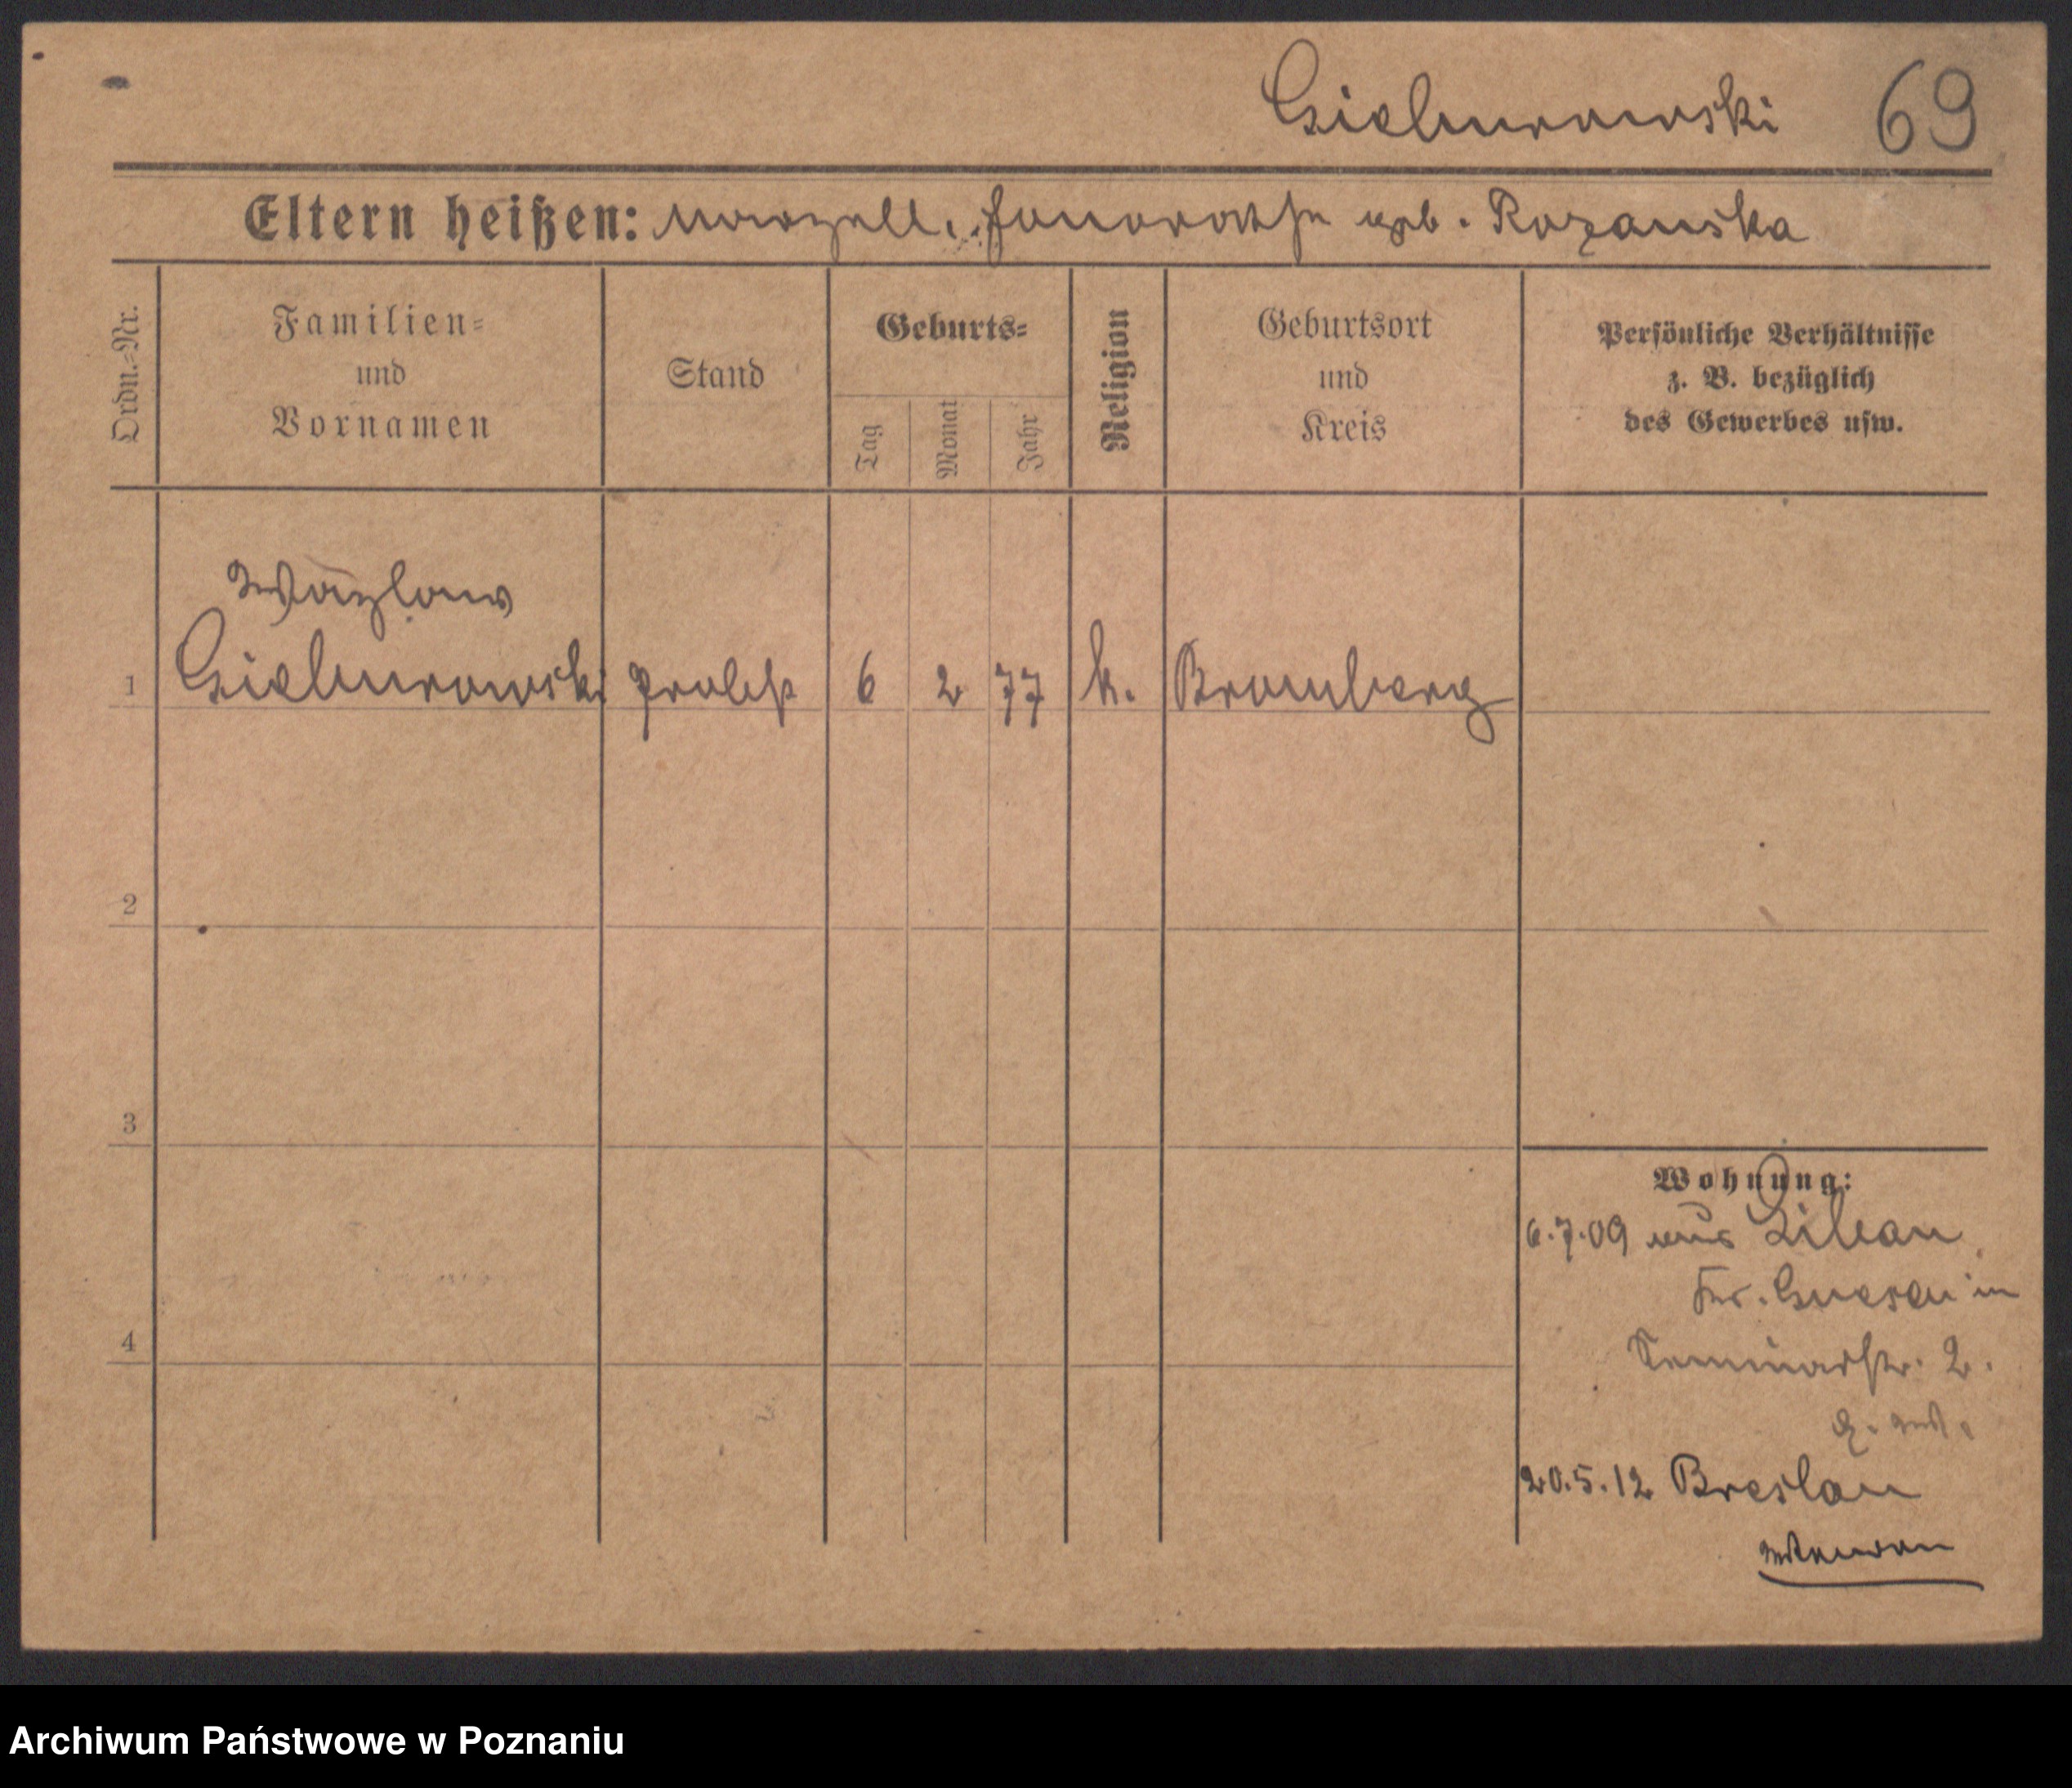 Gieburowski 69
Eltern heißen: Marzell, Honorathe geb. Rozanska
Ordn.=Nr.
Familien=
und
Vornamen
Stand
Geburts=
Tag
Monat
Jahr
Religion
Geburtsort
und
Kreis
Persönliche Verhältnisse
z. B. bezüglich
des Gewerbes usw.
Wazlaw
1 Gieburowski Probst 6 2 77 k. Bromberg
2
3
4
Wohnung:
6.7.09 aus Libau
Kr. Gnesen in
Seminarstr. 2.
20.5.12 Breslau
Archiwum Państwowe w Poznaniu